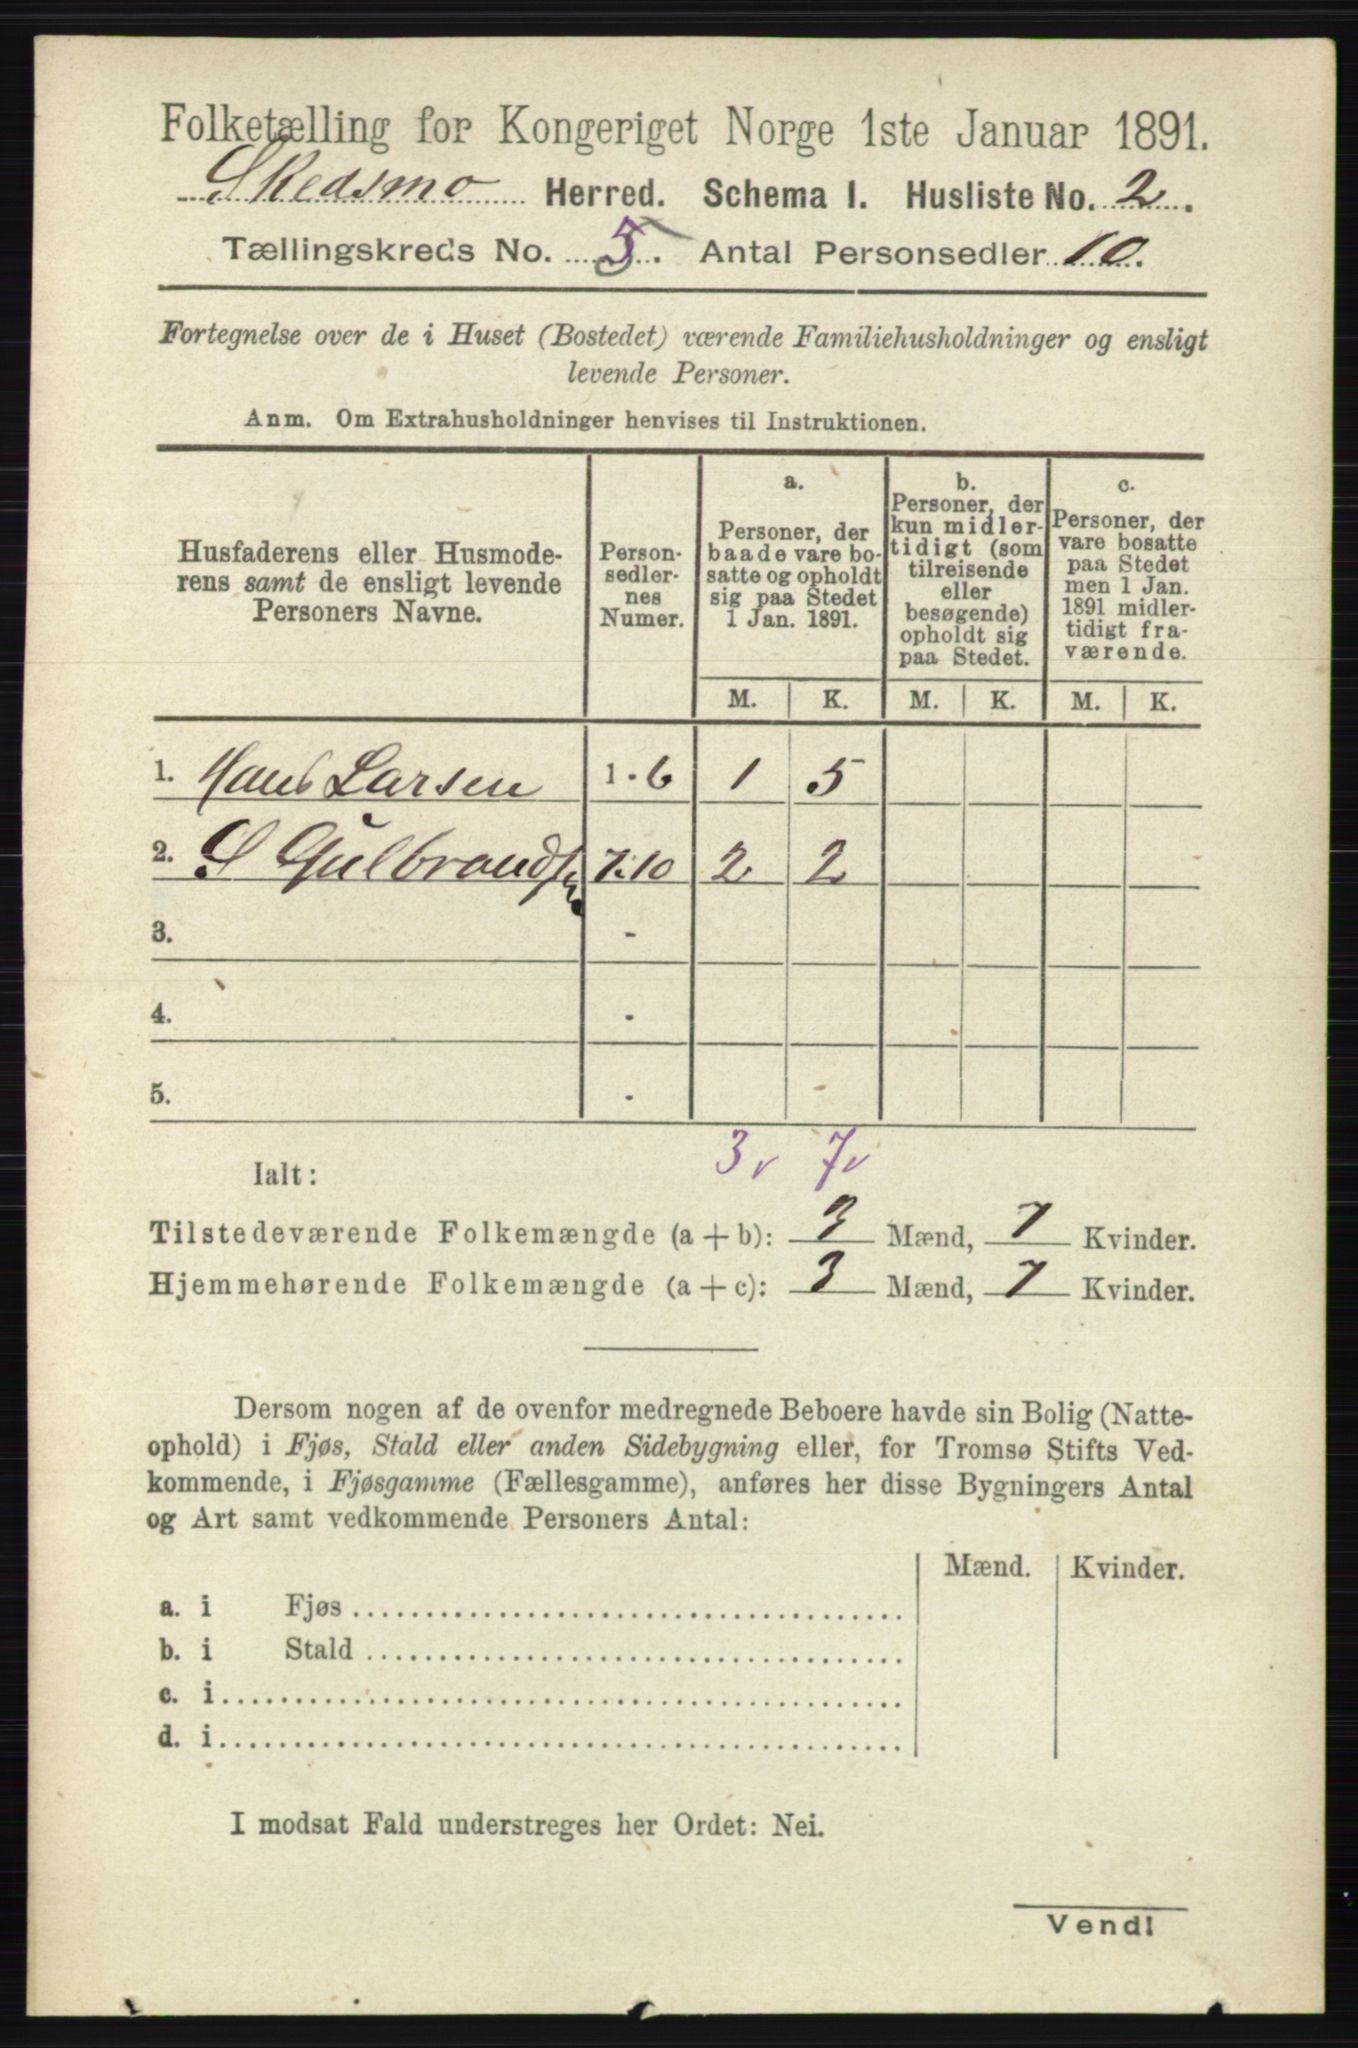 Folketælling for Kongeriget Norge 1ste Januar 1891.
Skedsmo Herred. Schema I. Husliste No. 2.
Tællingskreds No. 5. Antal Personsedler 10.
Fortegnelse over de i Huset (Bostedet) værende Familiehusholdninger og ensligt
levende Personer.
Anm. Om Extrahusholdninger henvises til Instruktionen.
Husfaderens eller Husmode-
rens samt de ensligt levende
Personers Navne.
Person-
sedler-
nes
Numer.
a.
Personer, der
baade vare bo-
satte og opholdt
sig paa Stedet
1 Jan. 1891.
b.
Personer, der
kun midler-
tidigt (som
tilreisende
eller
besøgende)
opholdt sig
paa Stedet.
c.
Personer, der
vare bosatte
paa Stedet
men 1 Jan.
1891 midler-
tidigt fra-
værende.
M. K. M. K. M. K.
1. Hans Larsen 1 - 6 1 5
2. S Gulbrands 7-10 2 2
3. -
4. -
5. -
3 v 7 v
Ialt:
Tilstedeværende Folkemængde (a + b): 3 Mænd, 7 Kvinder.
Hjemmehørende Folkemængde (a + c): 3 Mænd, 7 Kvinder.
Dersom nogen af de ovenfor medregnede Beboere havde sin Bolig (Natte-
ophold) i Fjøs, Stald eller anden Sidebygning eller, for Tromsø Stifts Ved-
kommende, i Fjøsgamme (Fællesgamme), anføres her disse Bygningers Antal
og Art samt vedkommende Personers Antal:
Mænd. Kvinder.
a. i Fjøs
b. i Stald
c. i
d. i
I modsat Fald understreges her Ordet: Nei.
Vend!